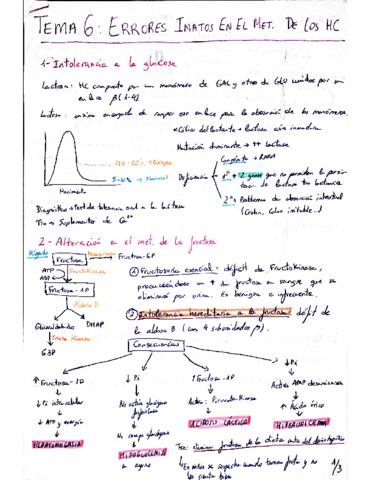 TEMA 6: ERRORES INATOS EN EL MET. DE LOS HC
1- Intolerancia a la glucosa
Lactosa: HC compuesto por un monómero de GAL y otro de GLU unidos por un
enlace β(1-4)
Lactasa: enzima encargada de romper ese enlace para la absorción de los monómeros
Cólico del lactante → lactasa aún inmadura
Mutación dominante → ↑↑ lactasa
Deficiencia
Congénita → RARA
1ª → 2 genes que no permiten la persis-
tencia de lactasa
2ª → Problemas de absorción intestinal
(Crohn, Colon irritable..)
Nacimiento
5-10% → Normal
Diagnóstico → test de tolerancia oral a la lactosa
Tto → Suplementos de Ca²⁺
2- Alteración en el met. de la fructosa
Hígado
Fructosa
Fructosa-6P
ATP
ADP
Fructokinasa
Fructosa-1P
Aldolasa B
Gliceraldehído
DHAP
Triosa Kinasa
G3P
① Fructosuria esencial: déficit de Fructokinasa,
produciéndose un ↑ de fructosa en sangre que se
eliminará por orina. Es benigna e infrecuente.
② Intolerancia hereditaria a la fructosa: déficit de
la aldolasa B (con 4 subunidades β)
Consecuencias
↑ Fructosa-1P
↓ Pi intracelular
↓ ATP y energía
HEPATOMEGALIA
↓ Pi
No activa glucógeno
fosforilasa
No rompe glucógeno
HIPOGLUCEMIA
en ayuno
↑ Fructosa-1P
Activa: Piruvato Kinasa
ACIDOSIS LÁCTICA
↓ Pi
Activa AMP desaminasa
↑ Ácido úrico
HIPERURICEMIA
Tto: eliminar fructosa de la dieta antes del
En niños se sospecha cuando toman fruta y no
les sienta bien
1/3